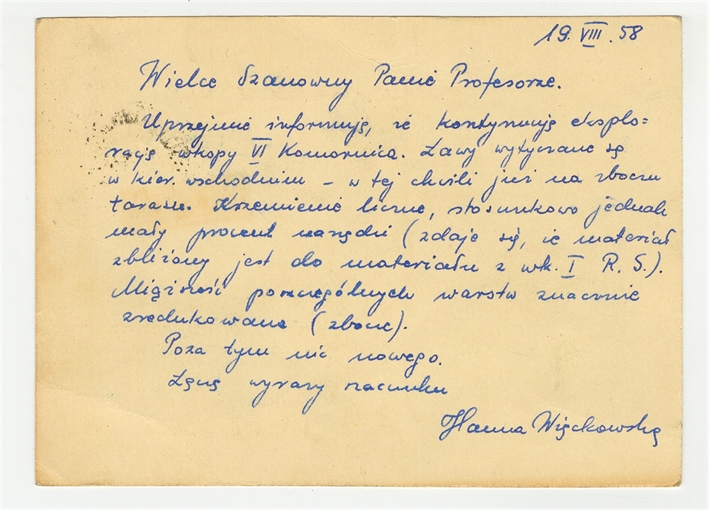 19. VIII. 58
Wielce Szanowny Panie Profesorze.
Uprzejmie informuję, że kontynuuję eksplo=
rację wkopu VI Komornica. Ławy wytyczane są
w kier. wschodnim – w tej chwili już na zboczu
tarasu. Krzemienie liczne, stosunkowo jednak
mały procent narzędzi (zdaje się, że materiał
zbliżony jest do materiału z wk. I R. S.).
Miąższość poszczególnych warstw znacznie
zredukowana (zbocze).
Poza tym nic nowego.
Łączę wyrazy szacunku
Hanna Więckowska